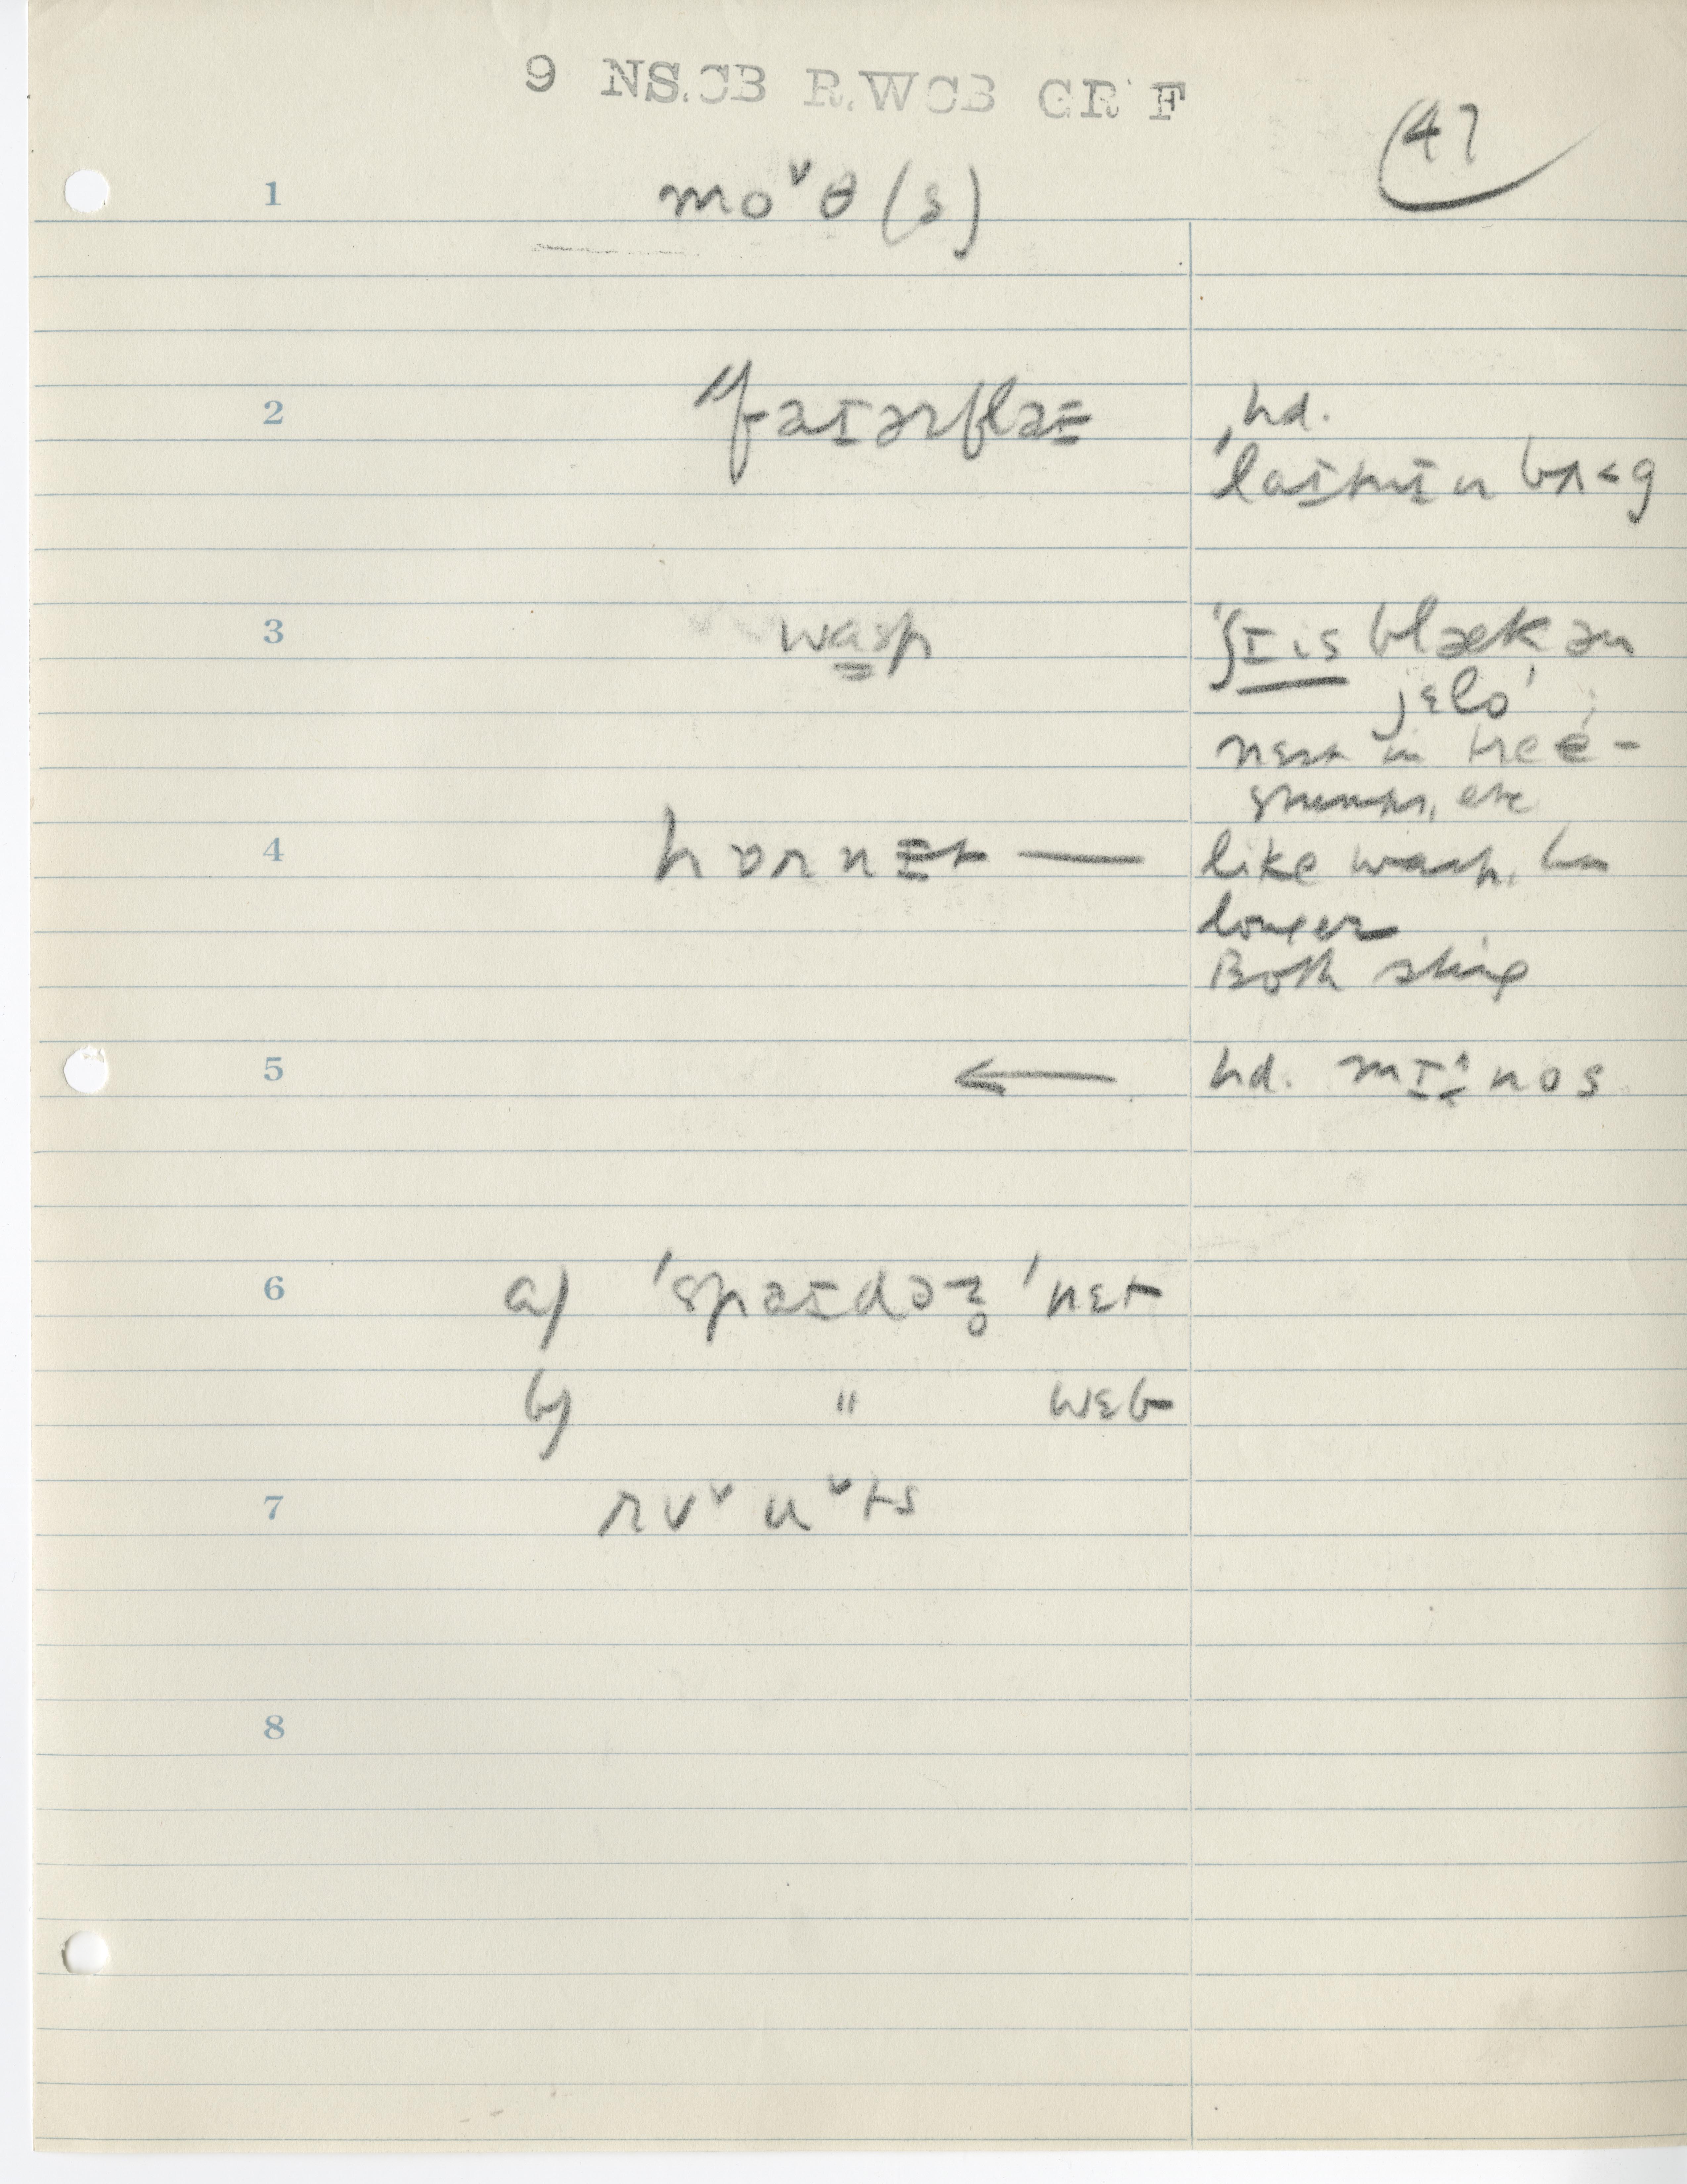 9 NS.CB R.WCB GR F
47
1 moᵛθ(s)
2 ˈfəɪərfləɪ hd.
ˈlaɪtnɪn bʌ˂g
3 wasp 'ʃɪ is blæk ən
jɛlo'
nest in tree-
stumps, etc
4 hɒrnɪt — like wasp, but
longer
Both sting
5 ← hd. mɪˑnos
6 a) ˈspəɪdəz̥ ˈnɛt
b) " wɛb
7 rʊᵛuᵛts
8